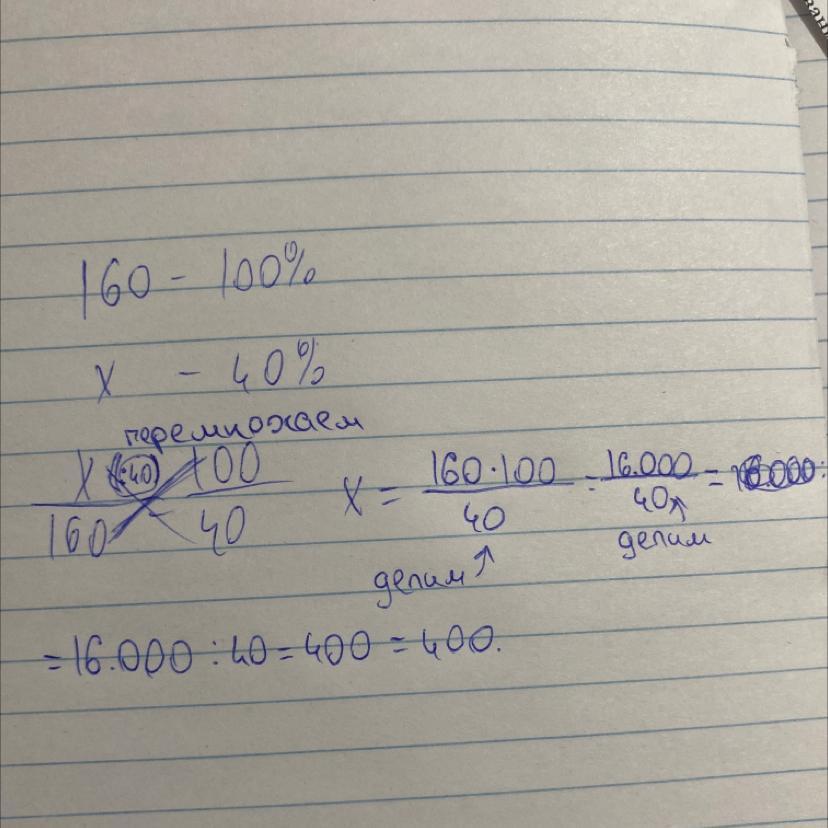 160 - 100%
x - 40%
перемножаем
x (:40) 100
160 - 40
x = 160·100 / 40 = 16.000 / 40 =
делим ↗ делим
= 16.000 : 40 = 400 = 400.